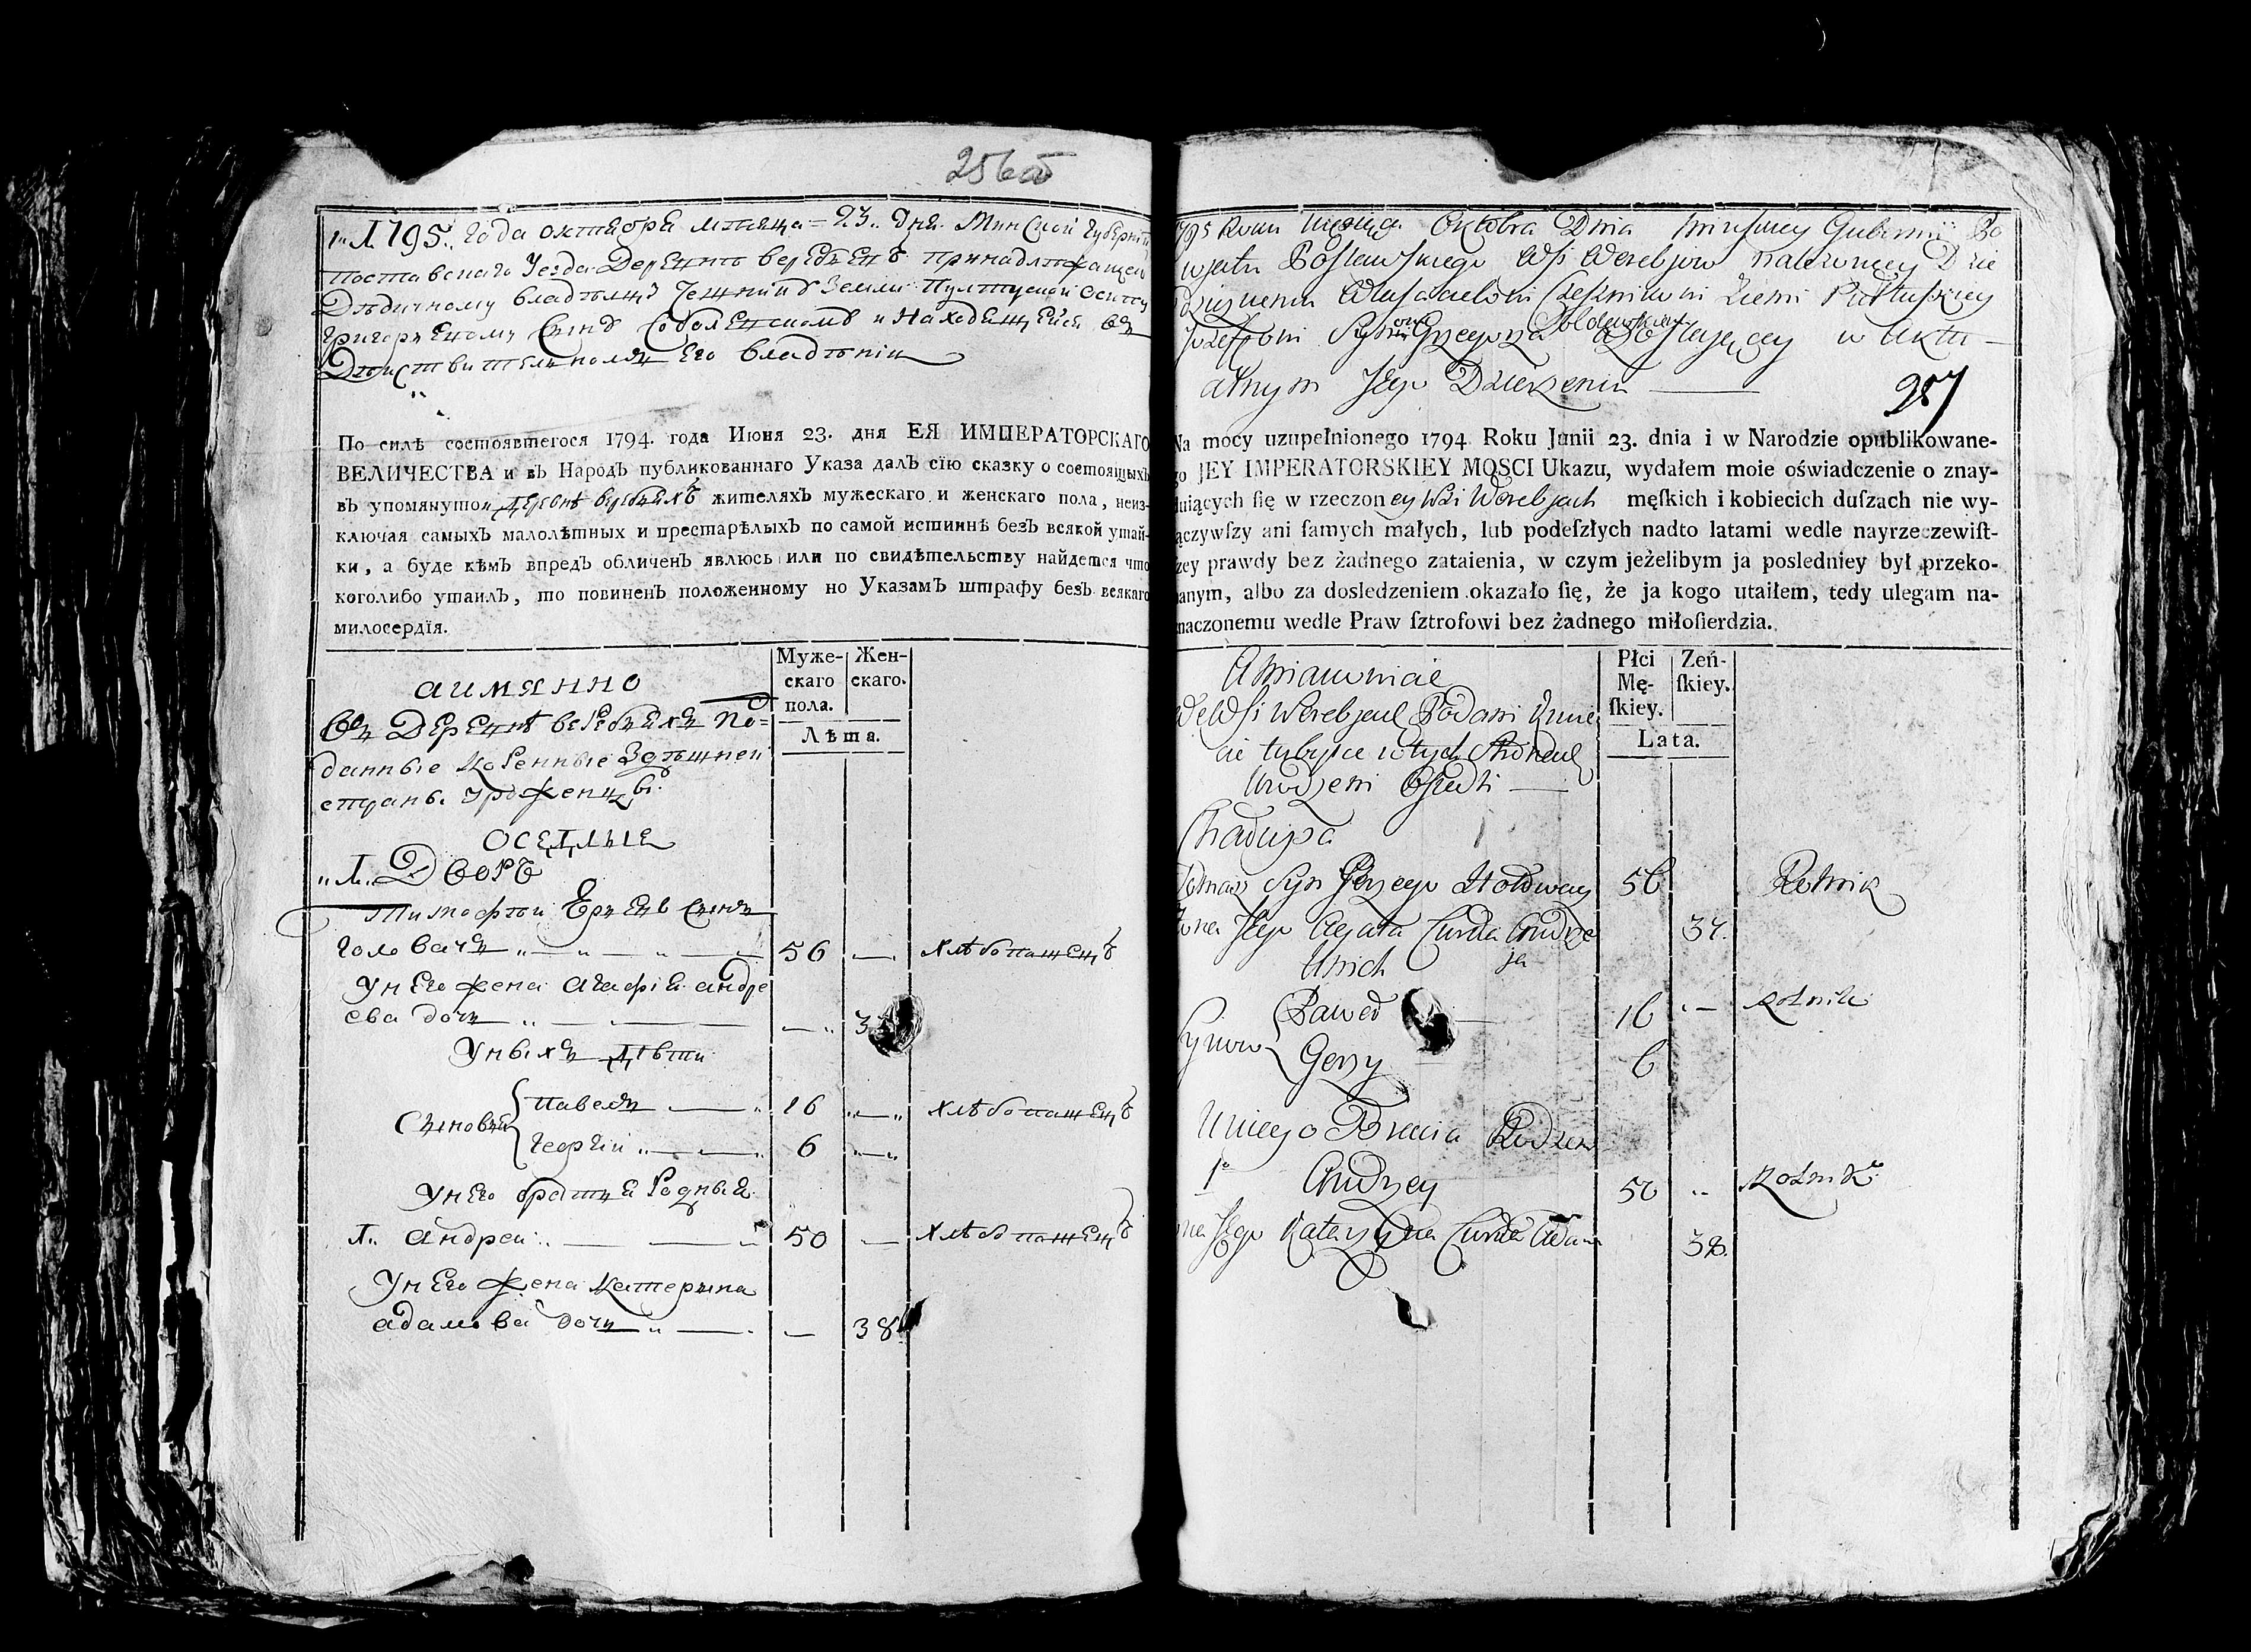 256об
1795. Года октября мѣсяца 23. Дня Минской Губерніи
Поставскаго Уезда Деревнѣ веребьевъ принадлежащей
Дѣдичному владѣлцу Чешнику Земли Пултуской Осипу
Григорьевому сыну и находящейся въ
Дѣйствительномъ Его владѣніи
По силѣ состоявшегося 1794. года Июня 23. дня ЕЯ ИМПЕРАТОРСКАГО
ВЕЛИЧЕСТВА и въ Народъ публикованнаго Указа далъ сїю сказку о состоящыхъ
въ упомянутои Деревнѣ веребьяхъ жителяхъ мужескаго и женскаго пола, неиз-
ключая самыхъ малолѣтныхъ и престарѣлыхъ по самой истиннѣ безъ всякой утай-
ки, а буде кѣмъ впредъ обличенъ явлюсь или по свидѣтельству найдется что
коголибо утаилъ, то повиненъ положенному но Указамъ штрафу безъ всякаго
милосердїя.
Муже- Жен-
скаго скаго.
пола.
Лѣта.
аимянно
въ Деревнѣ веребьяхъ по=
данные коренные Здѣшней
страны уроженцы
ОСЕДЛЫЕ
1. Дворъ
Тимофѣи сынъ
Головачъ 56 — хлѣбопашецъ
У Него жена агафія андре
ева дочь —
У ныхъ дѣти
Сыновья павелъ 16 хлѣбопашецъ
георгіи 6
У Него братья Родныя
1. андреи 50 — хлѣбопашецъ
У Него жена катерына
адамова дочь — 38
1795 Roku Miesiąca Oktobra Dnia Minskiey Gubernii Po
wiatu Postawskiego Wsi Werebjow należącey Dzie
dzicznemu Czesznikowi Ziemi Pułtuskiey
Jozefowi Synowi Grzegorza w Aktu
alnym Jego Dzierżeniu
257
Na mocy uzupełnionego 1794 Roku Junii 23. dnia i w Narodzie opublikowane-
go JEY IMPERATORSKIEY MOSCI Ukazu, wydałem moie oświadczenie o znay-
duiących ſię w rzeczoney Wsi Werebjach męſkich i kobiecich duſzach nie wy-
łączywſzy ani ſamych małych, lub podeſzłych nadto latami wedle nayrzeczewiſt-
ſzey prawdy bez żadnego zataienia, w czym jeżelibym ja posledniey był przeko-
nanym, albo za dosledzeniem okazało ſię, że ja kogo utaiłem, tedy ulegam na-
znaczonemu wedle Praw ſztrofowi bez żadnego miłoſierdzia.
Płci Zeń-
Mę- ſkiey.
ſkiey.
Lata.
A Mianowicie
We Wsi Werebjach Podani
tych Stronach
Urodzeni Osiedli
Chałupa
Tomasz Syn Hołowacz 56 Rolnik
Żona Jego Agata Curka Andrze 34.
ja
Unich
Synow Paweł 16 Rolnik
Gerzy 6
U niego Bracia
1o Andrzey 50 Rolnik
Żona Jego Katerzyna Curka Adama 38.